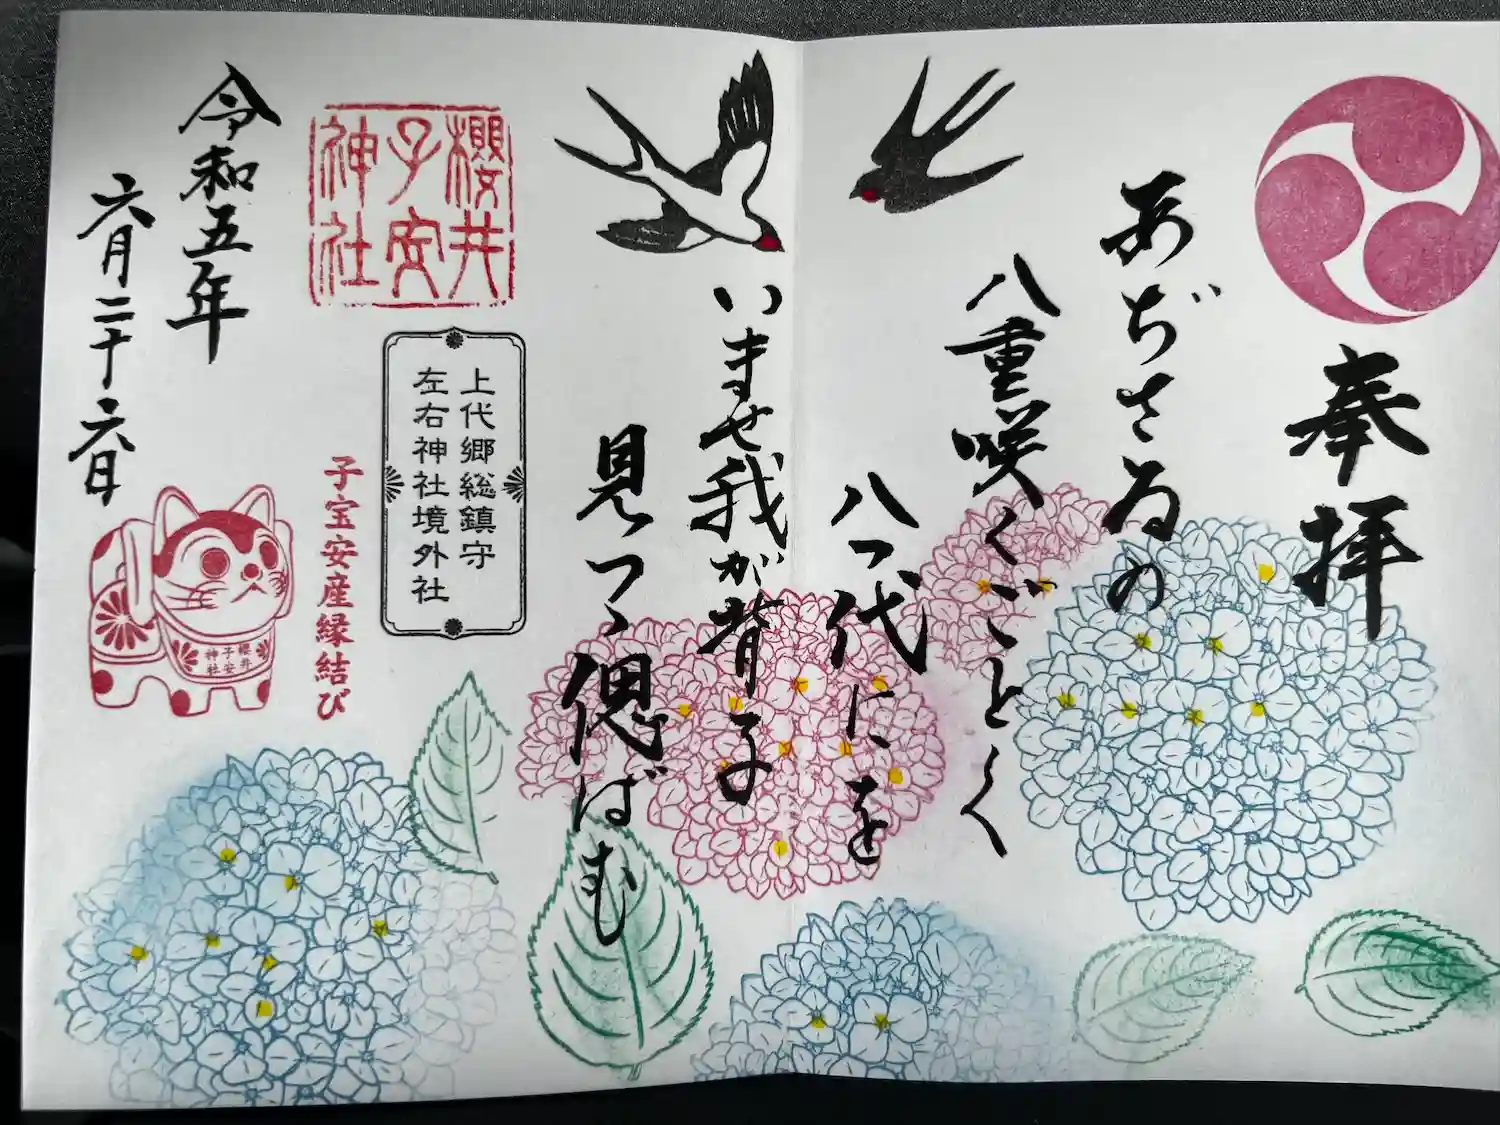 奉拝
あぢさゐの
八重咲くごとく
八つ代にを
いませ我が背子
見つゝ偲ばむ
櫻井
子安
神社
上代郷総鎮守
左右神社境外社
子宝安産縁結び
令和五年
六月二十六日
櫻井
子安
神社